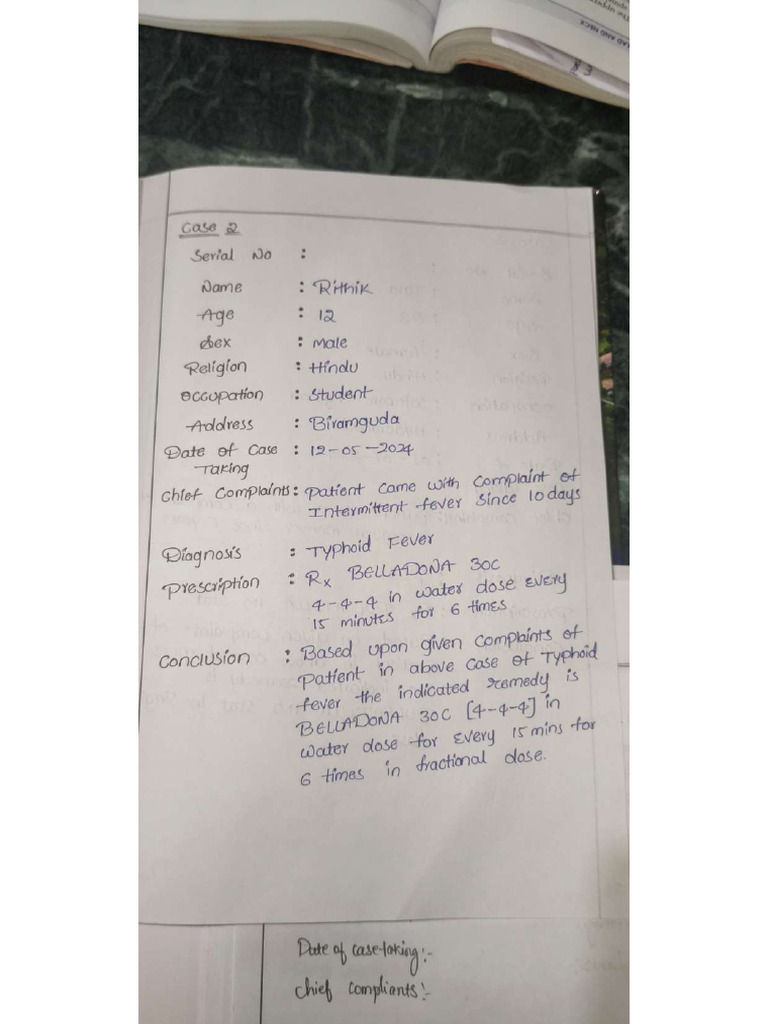 LEAD AND NECK
83
Case 2
Serial No :
Name : Rithik
Age : 12
Sex : Male
Religion : Hindu
Occupation : Student
Address : Biramguda
Date of Case : 12-05-2024
Taking
Chief Complaints : Patient came with complaint of
Intermittent fever since 10 days
Diagnosis : Typhoid Fever
Prescription : Rx BELLADONA 30C
4-4-4 in water dose every
15 minutes for 6 times
Conclusion : Based upon given complaints of
patient in above case of Typhoid
fever the indicated remedy is
BELLADONA 30C [4-4-4] in
water dose for every 15 mins for
6 times in fractional dose.
Date of case-taking:-
Chief compliants:-